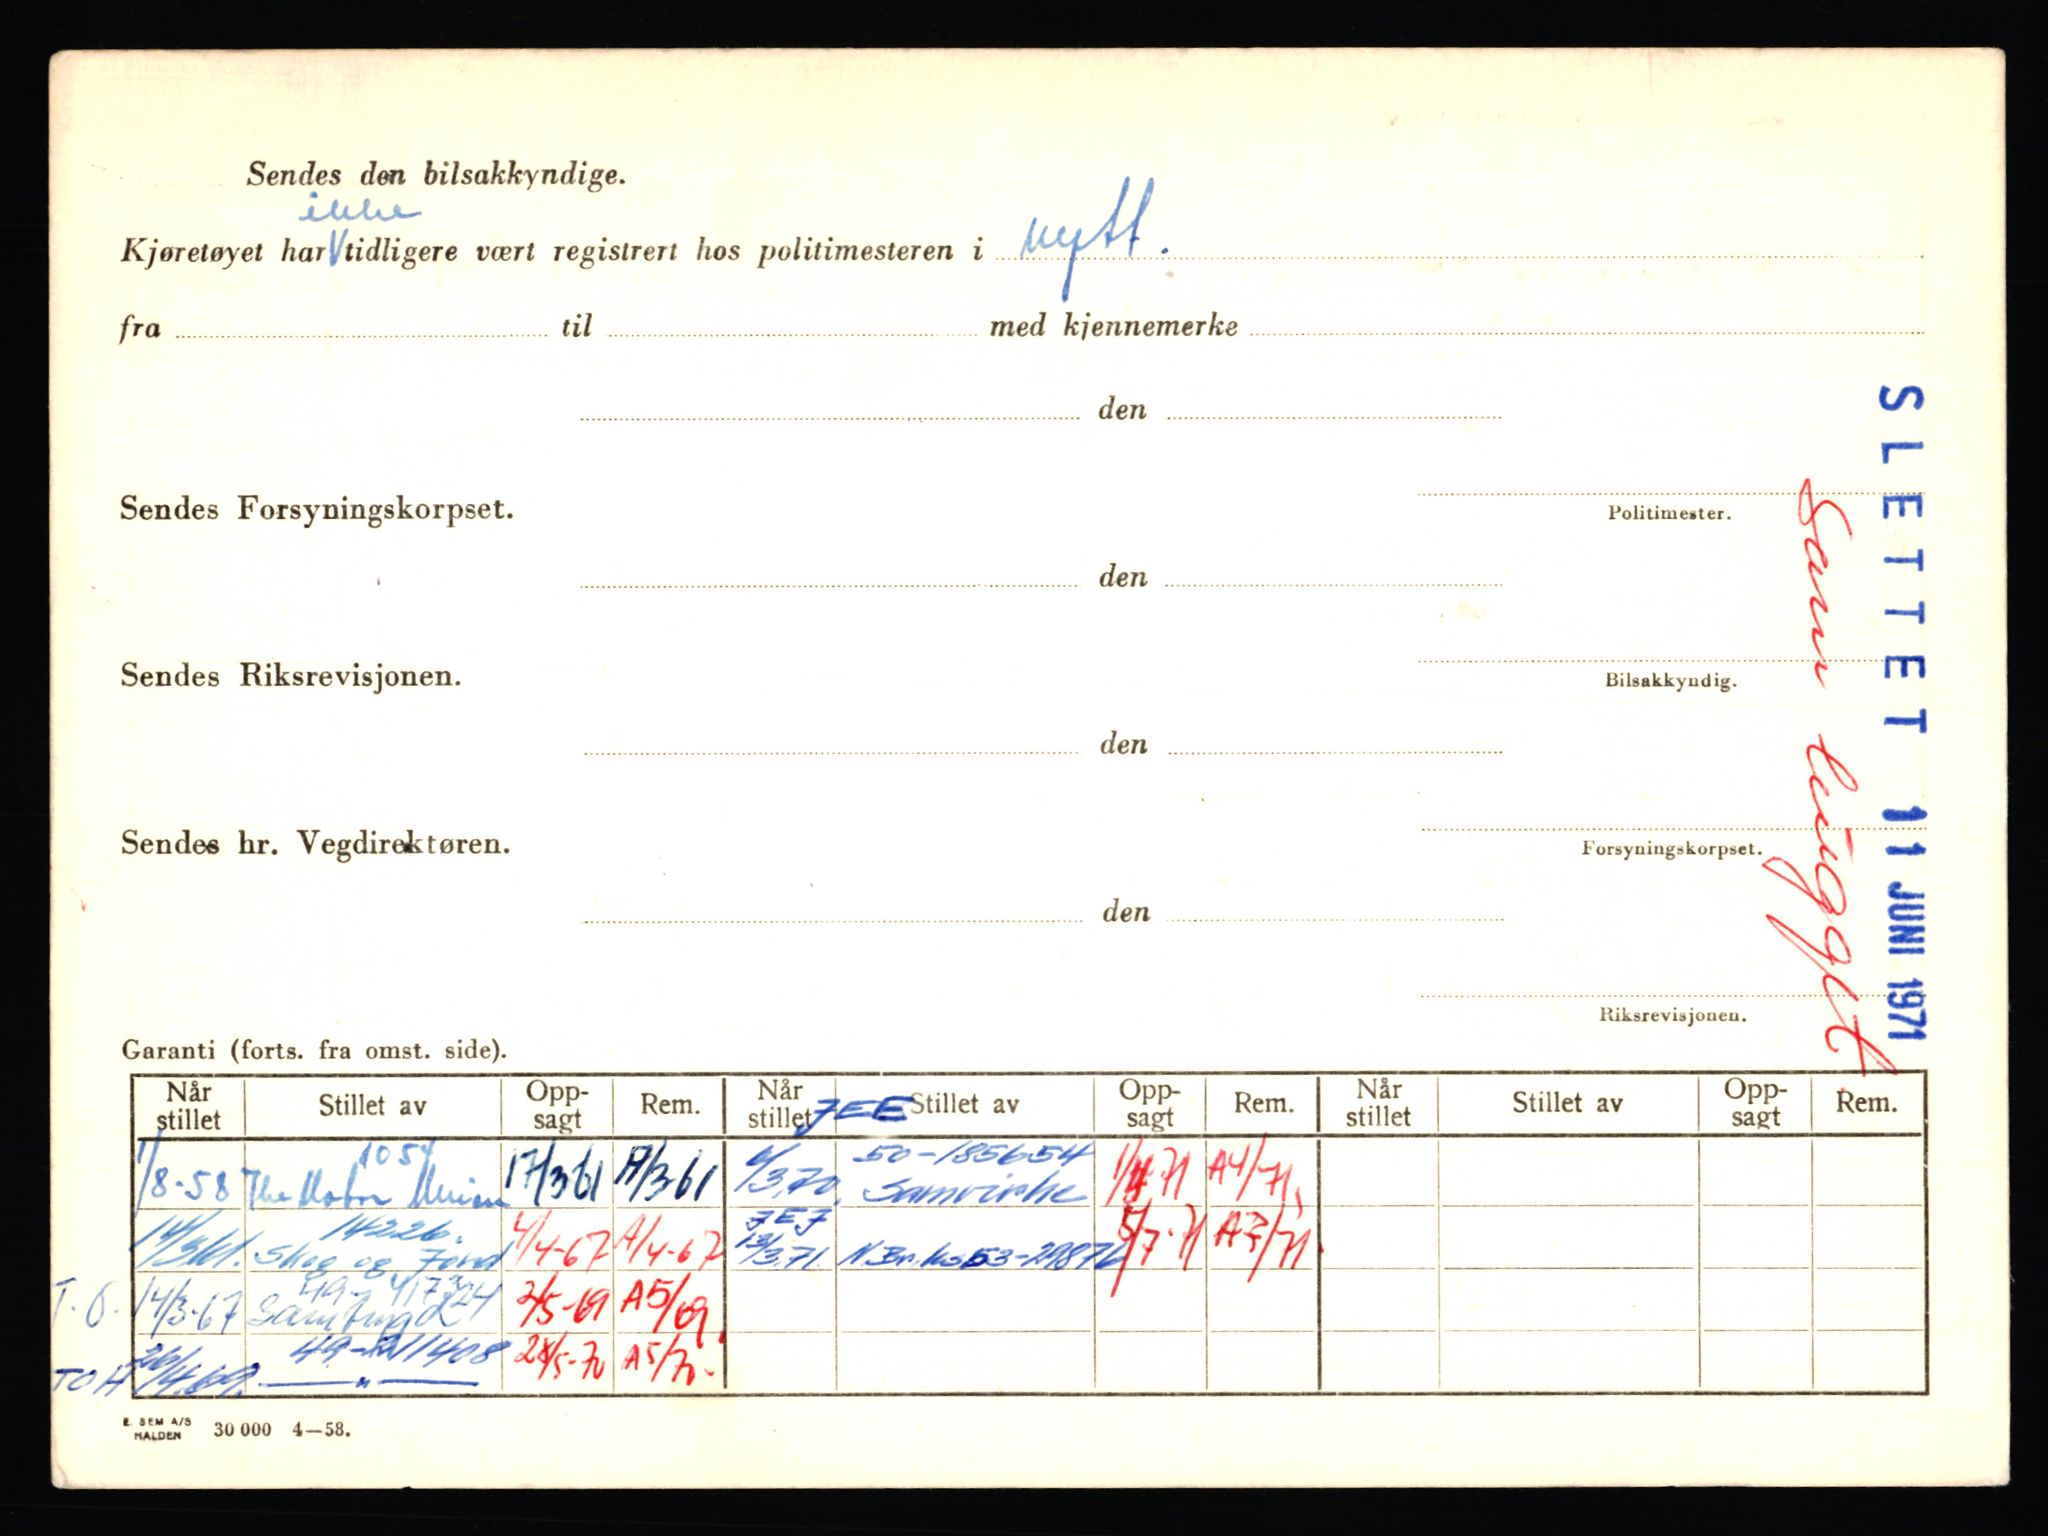 Sendes den bilsakkyndige.
ikke
Kjøretøyet har V tidligere vært registrert hos politimesteren i nytt.
fra til med kjennemerke
den
Politimester.
Sendes Forsyningskorpset.
den
Bilsakkyndig.
Sendes Riksrevisjonen.
den
Forsyningskorpset.
Sendes hr. Vegdirektøren.
den
Riksrevisjonen.
SLETTET 11 JUNI 1971
Garanti (forts. fra omst. side).
Når stillet Stillet av Oppsagt Rem. Når stillet Stillet av Oppsagt Rem. Når stillet Stillet av Oppsagt Rem.
JEE
1054 50-185654
1/8-58 The Motor Union 17/3 61 A/3 61 6/3.70. Samvirke 1/4 71 A4/71.
14226. JEJ
14/3 61. Skog og Jord 4/4-67 A/4-67 13/3.71. 5/7.71
T.O. 14/3-67 2/5-69 A5/69.
TOH 26/4.69. —"— 28/5-70 A5/70.
E. SEM A/S
HALDEN 30 000 4—58.